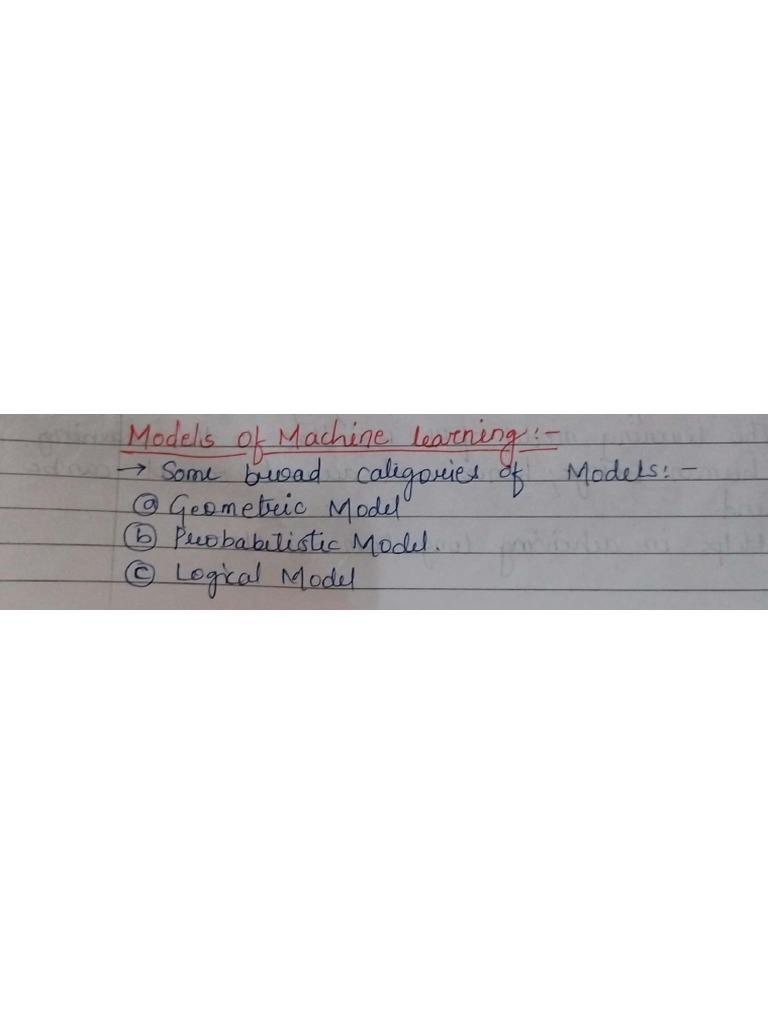 Models of Machine learning :-
→ Some broad categories of Models :-
ⓐ Geometric Model
ⓑ Probabilistic Model.
ⓒ Logical Model